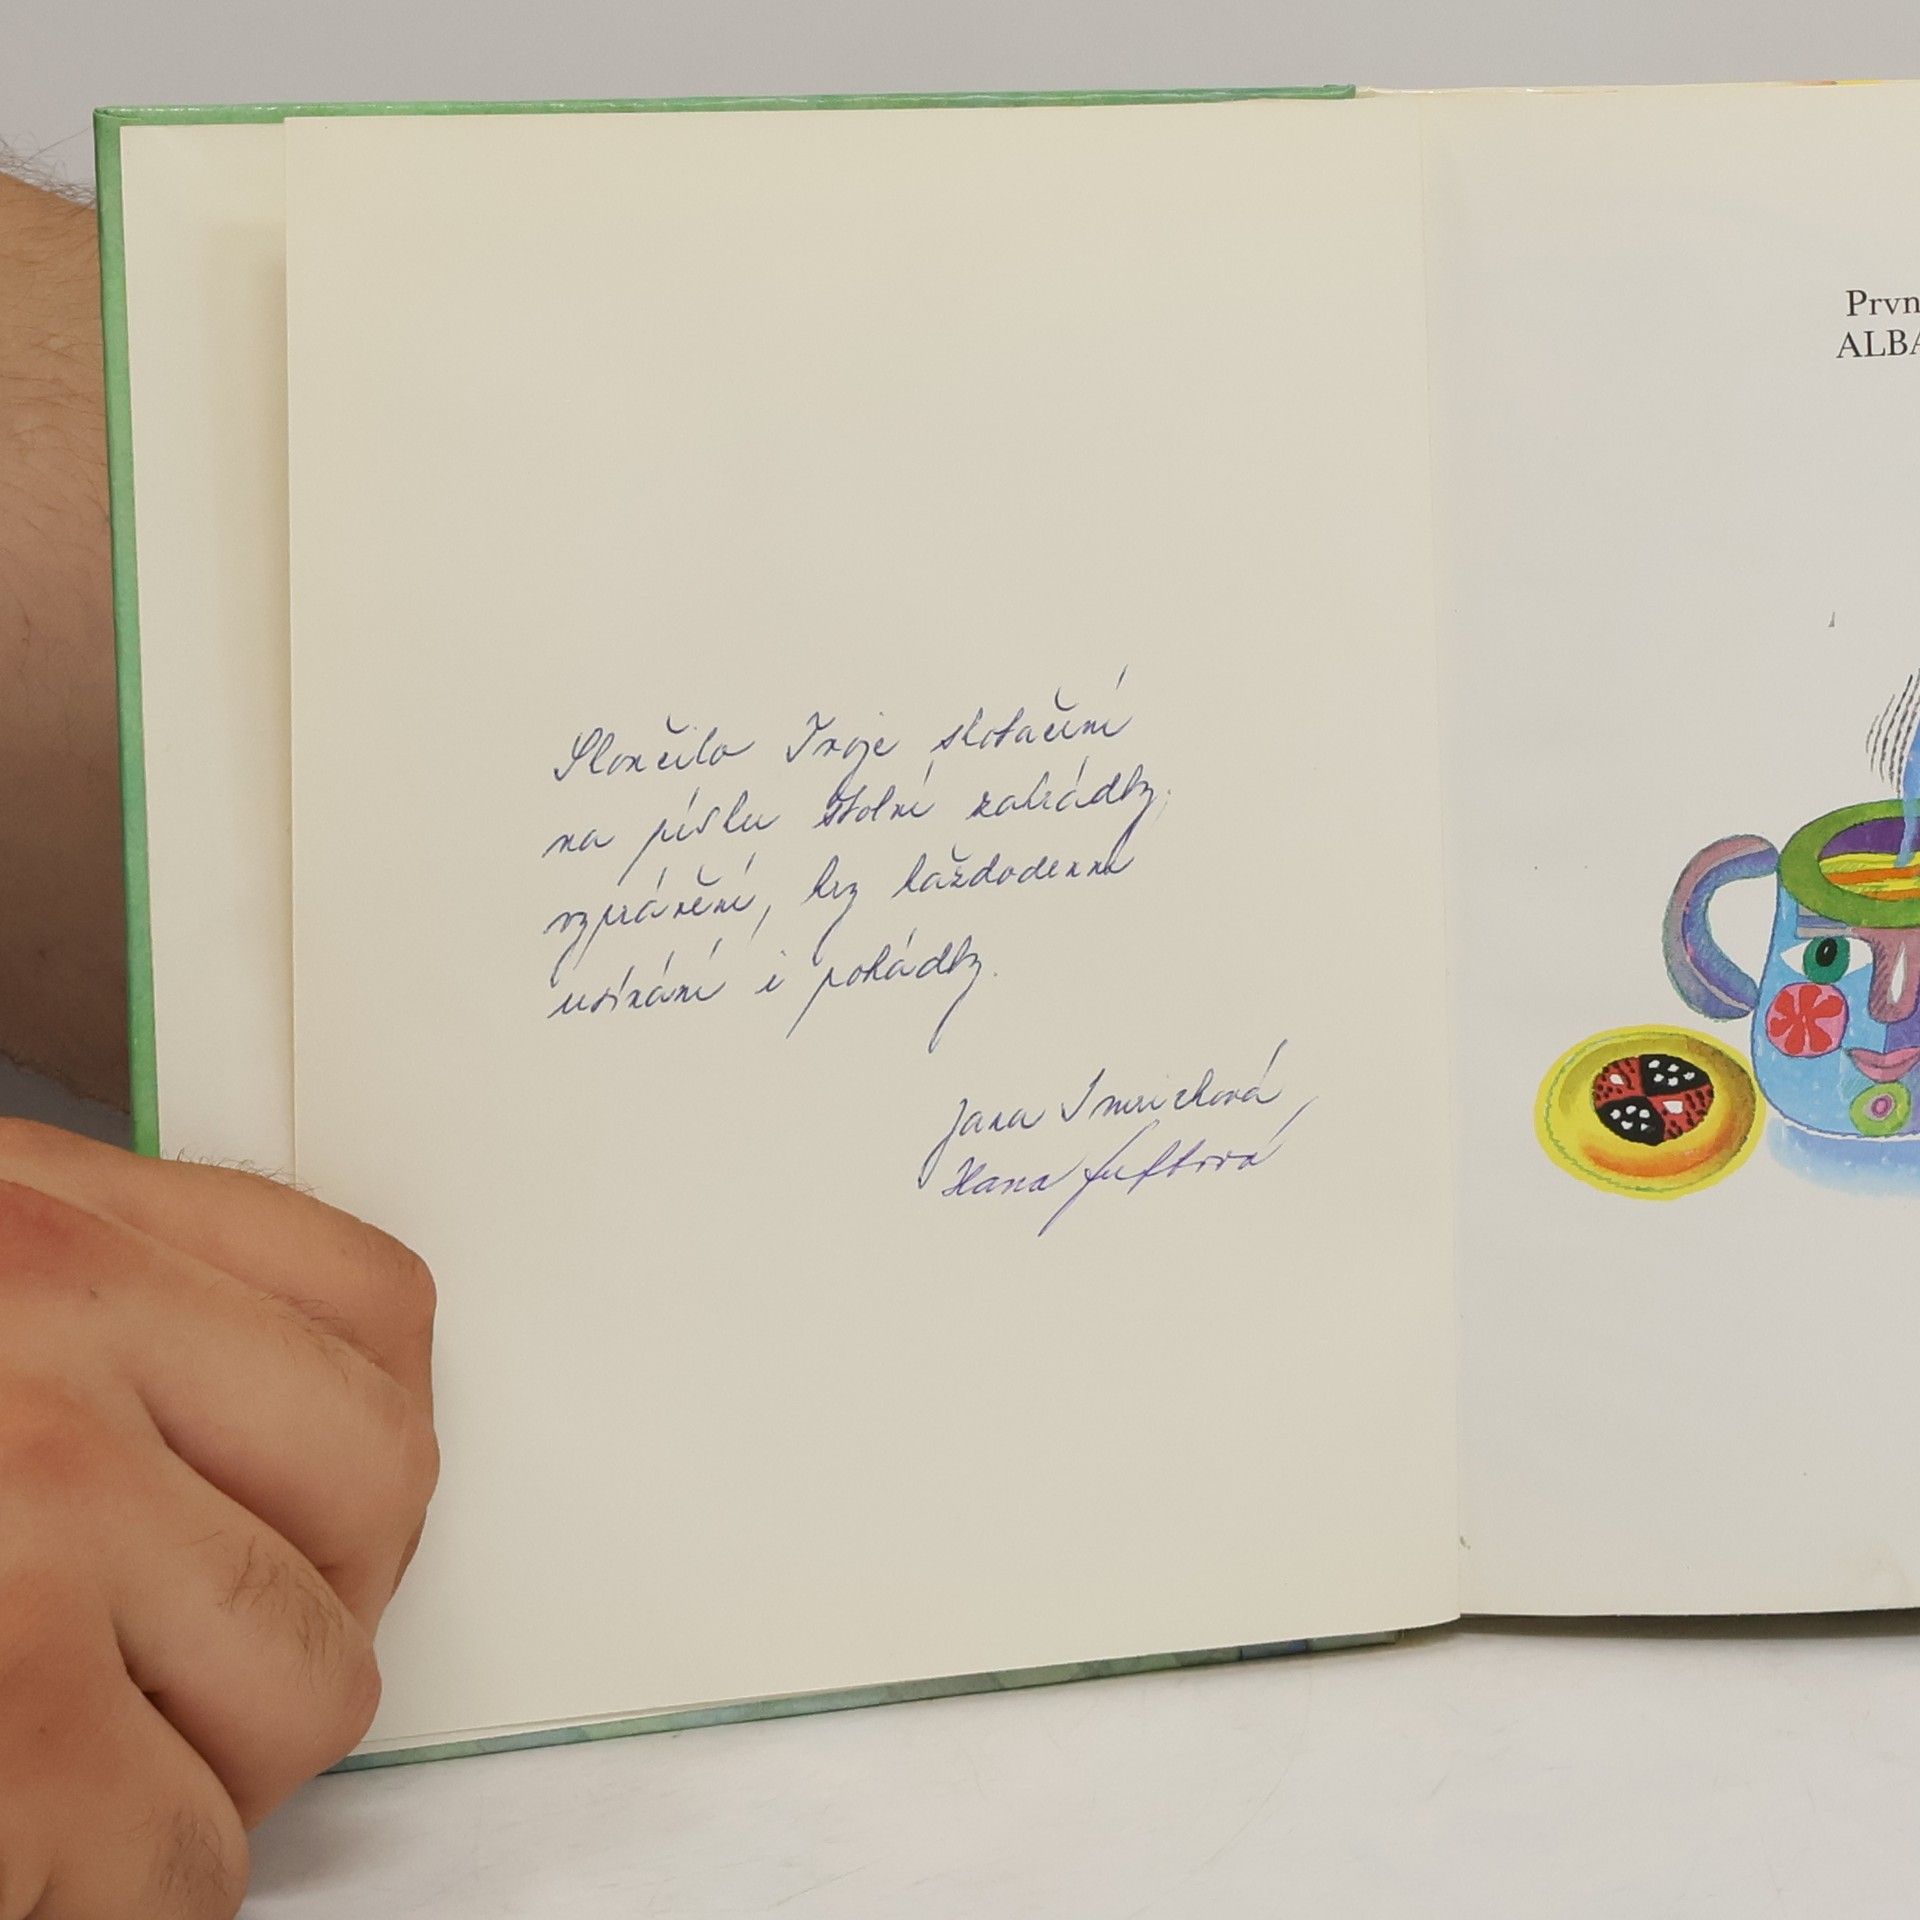 Skončilo Tvoje skotačení
na písku školní zahrádky,
vyprávění, hry každodenní
usínání i pohádky.
Jana Imrichová
Hana
Prvn
ALBA